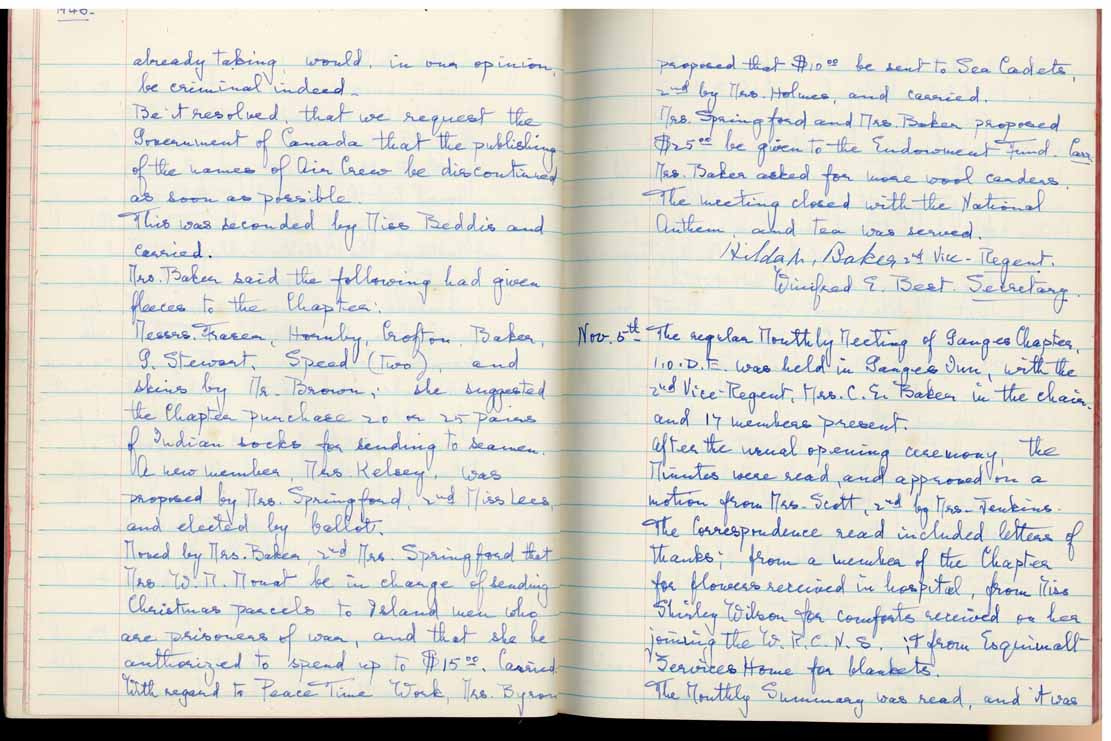 already taking, would, in our opinion,
be criminal indeed.
Be it resolved, that we request the
Government of Canada that the publishing
of the names of Air Crew be discontinued
as soon as possible.
This was seconded by Miss Beddis and
carried.
Mrs. Baker said the following had given
fleeces to the Chapter:
Messrs. Fraser, Hornby, Crofton, Baker,
G. Stewart, Speed (Two), and
skins by Mr. Brown; she suggested
the Chapter purchase 20 or 25 pairs
of Indian socks for sending to seamen.
A new member, Mrs. Kelsey, was
proposed by Mrs. Springford, 2nd Miss Lees,
and elected by ballot.
Moved by Mrs. Baker 2nd Mrs. Springford that
Mrs. W. M. Mouat be in charge of sending
Christmas parcels to Island men who
are prisoners of war, and that she be
authorized to spend up to $15.00. Carried
With regard to Peace Time Work, Mrs. Byron
proposed that $10.00 be sent to Sea Cadets,
2nd by Mrs. Holmes, and carried.
Mrs. Springford and Mrs. Baker proposed
$25.00 be given to the Endowment Fund. Carr.
Mrs. Baker asked for more wool carders.
The meeting closed with the National
Anthem, and tea was served.
Baker 2nd Vice-Regent.
Winifred E. Best. Secretary.
Nov. 5th The regular Monthly Meeting of Ganges Chapter,
I.O.D.E. was held in Ganges Inn, with the
2nd Vice-Regent, Mrs. C. E. Baker in the chair
and 17 members present.
After the usual opening ceremony, the
Minutes were read, and approved on a
motion from Mrs. Scott, 2nd by Mrs. Jenkins.
The Correspondence read included letters of
thanks; from a member of the Chapter
for flowers received in hospital, from Miss
Shirley Wilson for comforts received on her
joining the W.R.C.N.S. ; & from Esquimalt
Services Home for blankets.
The Monthly Summary was read, and it was